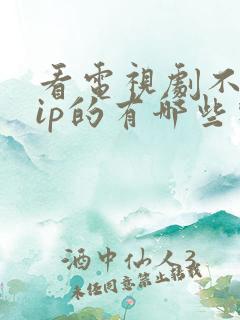 看電視劇不
ip的有哪些
酒中仙人3
未经同意禁止转载